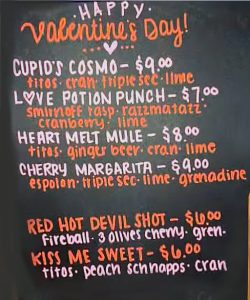 ·HAPPY·
Valentine's Day!
CUPID'S COSMO - $9.00
titos · cran · triple sec · lime
LOVE POTION PUNCH - $7.00
smirnoff rasp · razzmatazz ·
cranberry · lime
HEART MELT MULE - $8.00
titos · ginger beer · cran · lime
CHERRY MARGARITA - $9.00
espolon · triple sec · lime · grenadine
RED HOT DEVIL SHOT - $6.00
fireball · 3 olives cherry · gren.
KISS ME SWEET - $6.00
titos · peach schnapps · cran